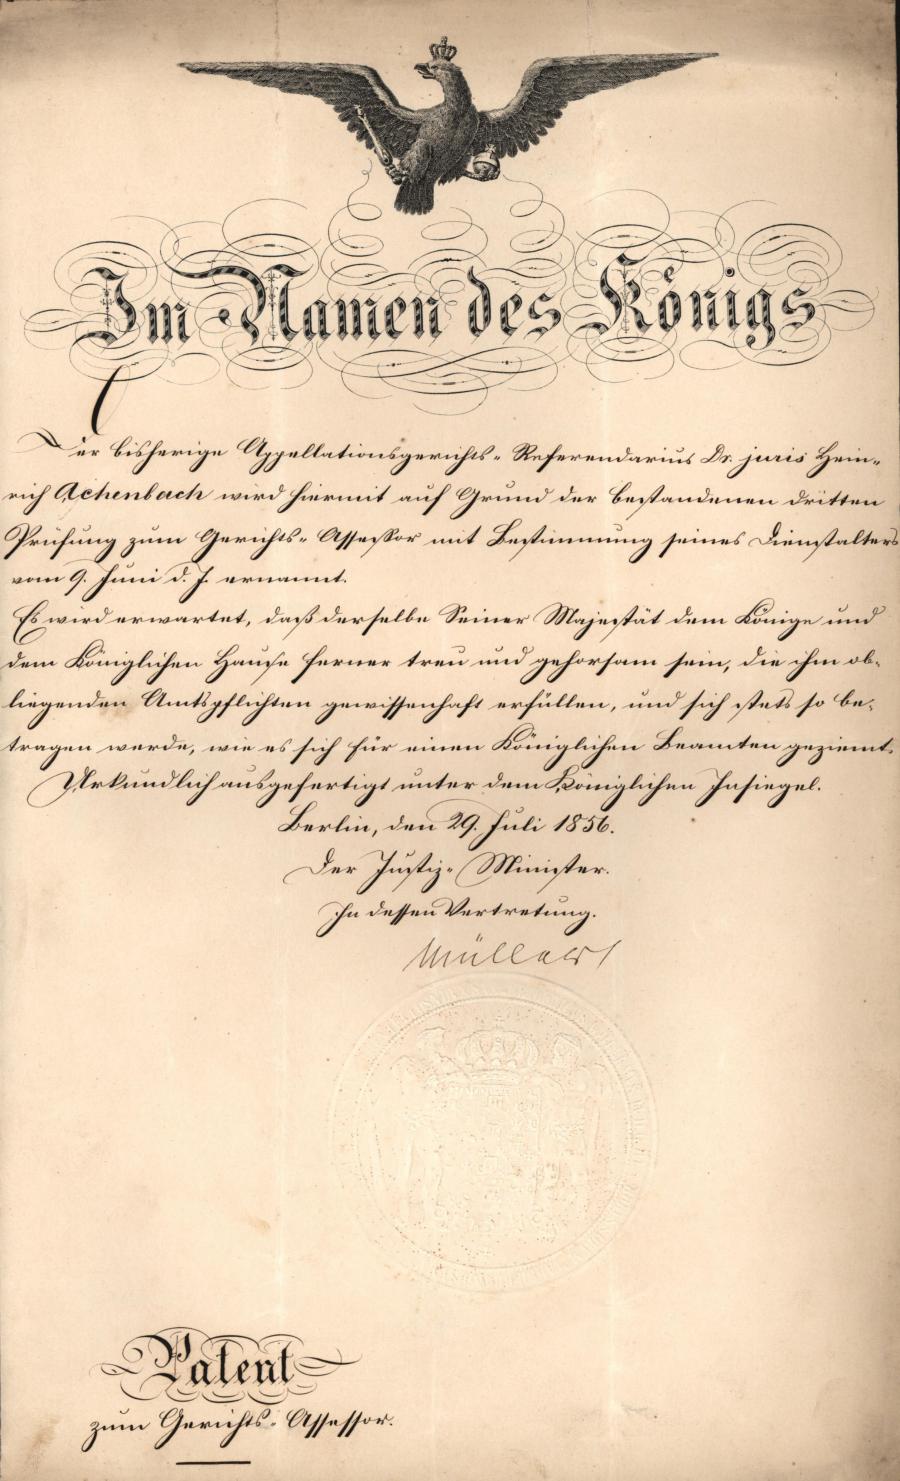 Im Namen des Königs
Der bisherige Appellationsgerichts-Referendarius Dr. juris Hein-
rich Achenbach wird hiermit auf Grund der bestandenen dritten
Prüfung zum Gerichts-Assessor mit Bestimmung seines Dienstalters
vom 9. Juni d. J. ernannt.
Es wird erwartet, daß derselbe Seiner Majestät dem Könige und
dem Königlichen Hause ferner treu und gehorsam sein, die ihm ob-
liegenden Amtspflichten gewissenhaft erfüllen, und sich stets so be-
tragen werde, wie es sich für einen Königlichen Beamten geziemt.
Urkundlich ausgefertigt unter dem Königlichen Insiegel.
Berlin, den 29. Juli 1856.
Der Justiz-Minister.
In dessen Vertretung.
Müller
Patent
zum Gerichts-Assessor.